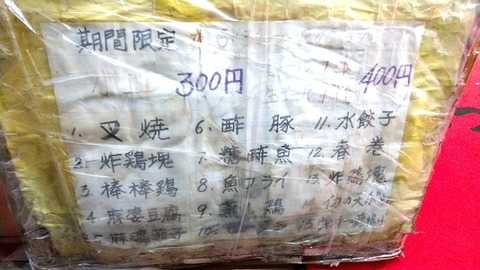 期間限定
300円
400円
1. 叉焼
2. 炸鶏塊
3. 棒棒鶏
4. 麻婆豆腐
5. 麻婆茄子
6. 酢豚
7. 糖酢魚
8. 魚フライ
9. 蒸し鶏
11. 水餃子
12. 春巻
13. 炸鶏塊